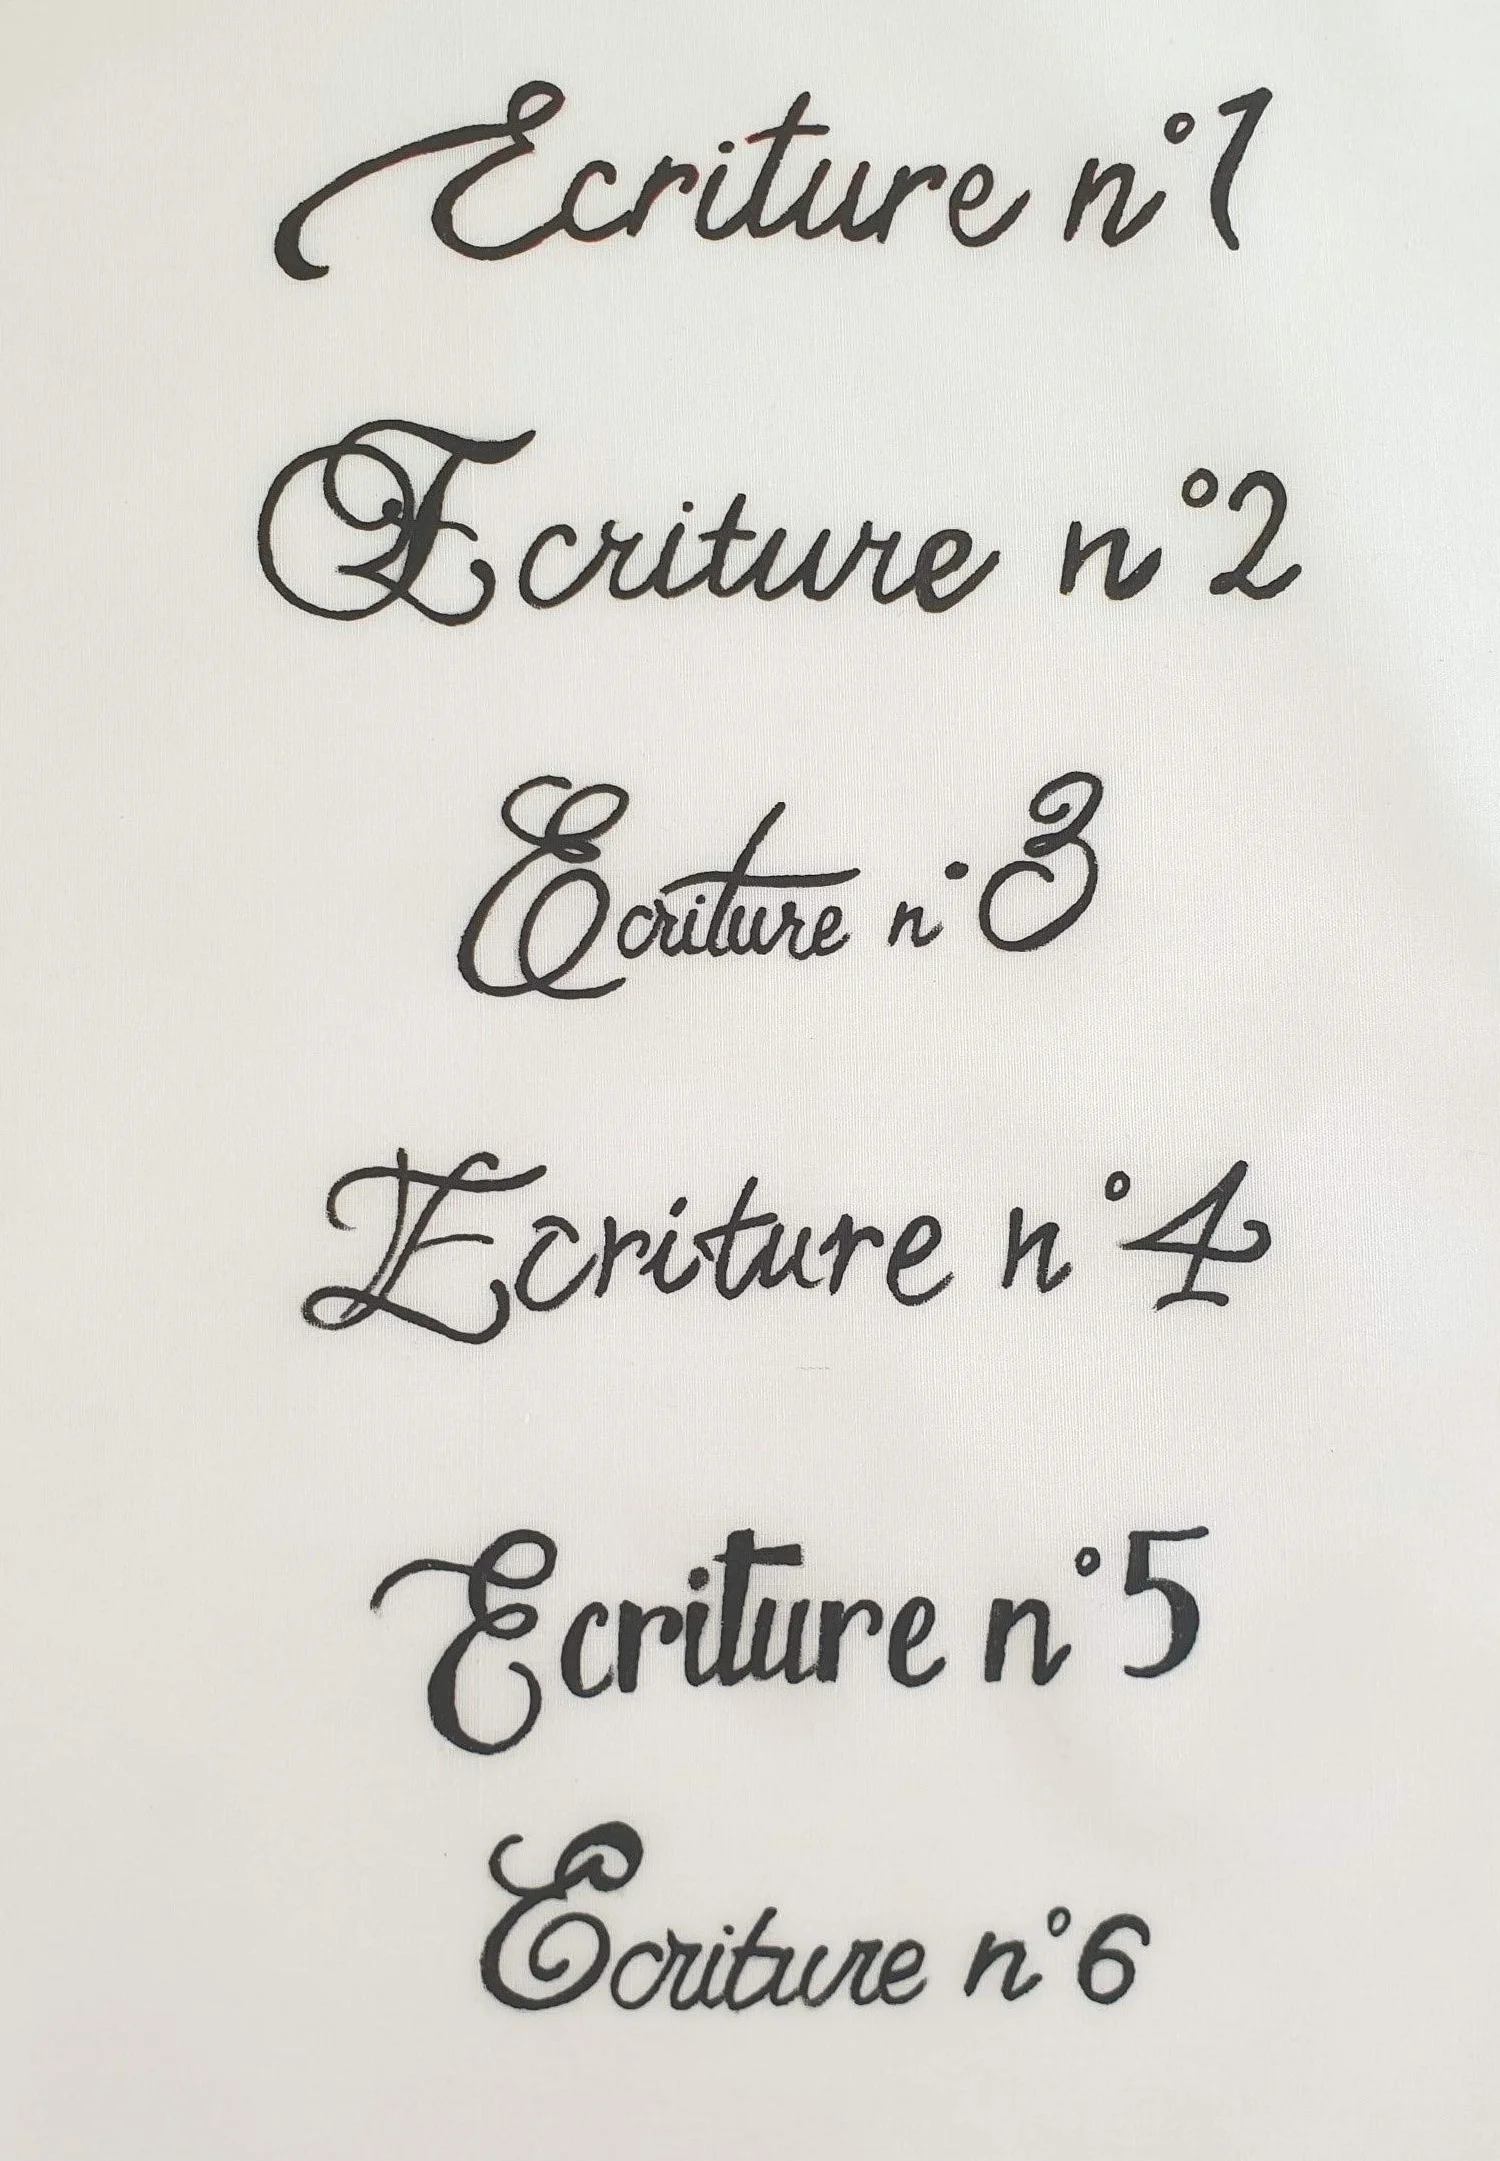 Ecriture n°1
Ecriture n°2
Ecriture n°3
Ecriture n°4
Ecriture n°5
Ecriture n°6